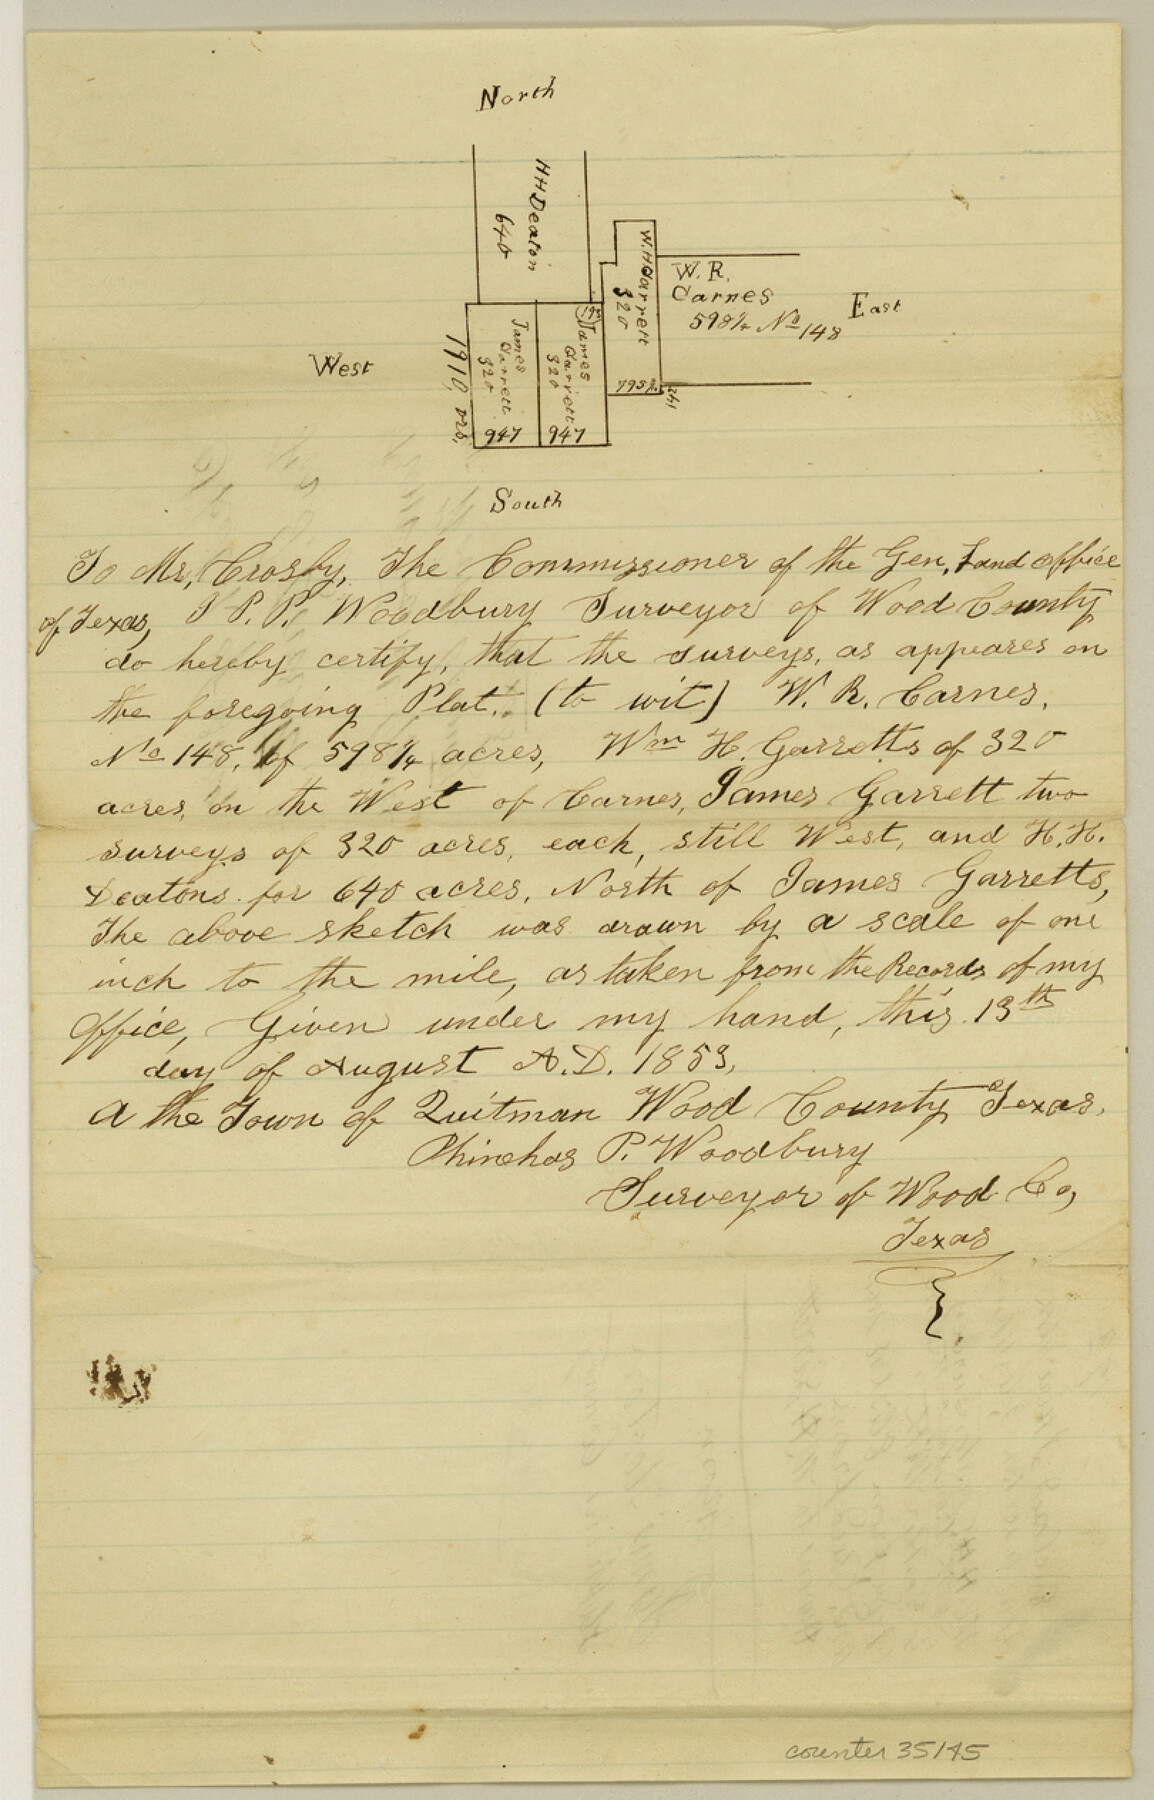 North
HH Deaton
640
W. H Garrett
320
W. R.
Carnes
598¼ No 148
East
West
1910 vrs.
James
Garrett
320
947
James
Garrett
320
947
795
South
To Mr, Crosby, The Commissioner of the Gen, Land office
of Texas, I P. P. Woodbury Surveyor of Wood County
do hereby certify, that the surveys, as appears on
the foregoing Plat. (to wit) W. R. Carnes,
No 148, of 598¼ acres, Wm H. Garretts of 320
acres, on the West of Carnes, James Garrett two
surveys of 320 acres, each, still West, and H. H.
Deatons for 640 acres, North of James Garretts,
The above sketch was drawn by a scale of one
inch to the mile, as taken from the Records of my
office, Given under my hand, this 13th
day of August A.D. 1853,
A the Town of Quitman Wood County Texas.
Phinehas P. Woodbury
Surveyor of Wood Co,
Texas
counter 35145